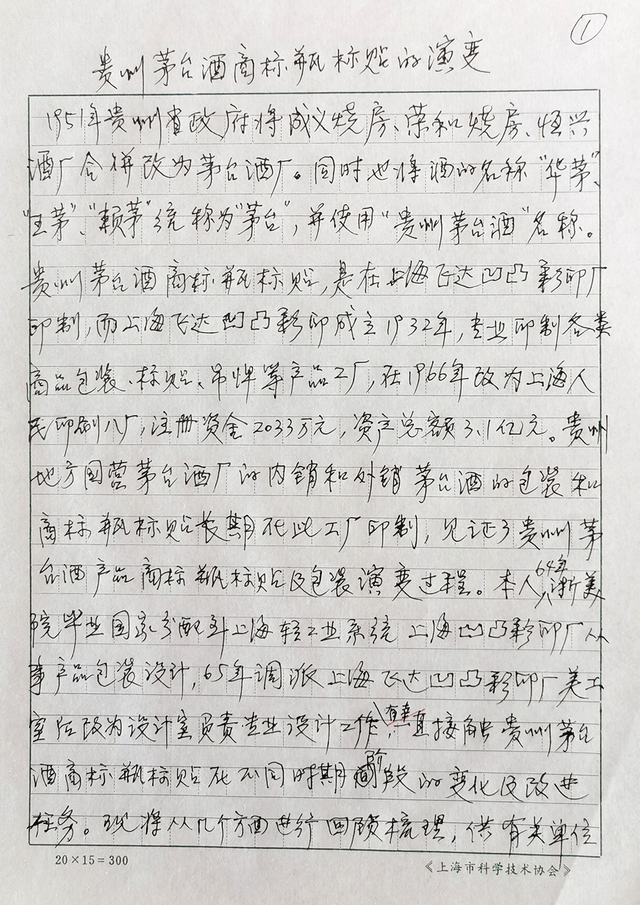 1
贵州茅台酒商标瓶标贴的演变
1951年贵州省政府将成义烧房、荣和烧房、恒兴
酒厂合併改为茅台酒厂。同时也将酒的名称"华茅"、
"王茅"、"赖茅"统称为"茅台",并使用"贵州茅台酒"名称。
贵州茅台酒商标瓶标贴,是在上海飞达凹凸彩印厂
印制,而上海飞达凹凸彩印成立1932年,专业印制各类
商品包装、标贴、吊牌等产品工厂,在1966年改为上海人
民印刷八厂,注册资金2033万元,资产总额3.1亿元。贵州
地方国营茅台酒厂的内销和外销茅台酒的包装和
商标瓶标贴长期在此工厂印制,见证了贵州茅
台酒产品商标瓶标贴及包装演变过程。本人64年浙美
院毕业国家分配到上海轻工业系统上海凹凸彩印厂从
事产品包装设计,65年调派上海飞达凹凸彩印厂美工
室后改为设计室负责专业设计工作,有幸直接触贵州茅台
酒商标瓶标贴在不同时期阶段的变化及改进
任务。现将从几个方面进行回顾梳理,供有关单位
20×15=300
《上海市科学技术协会》